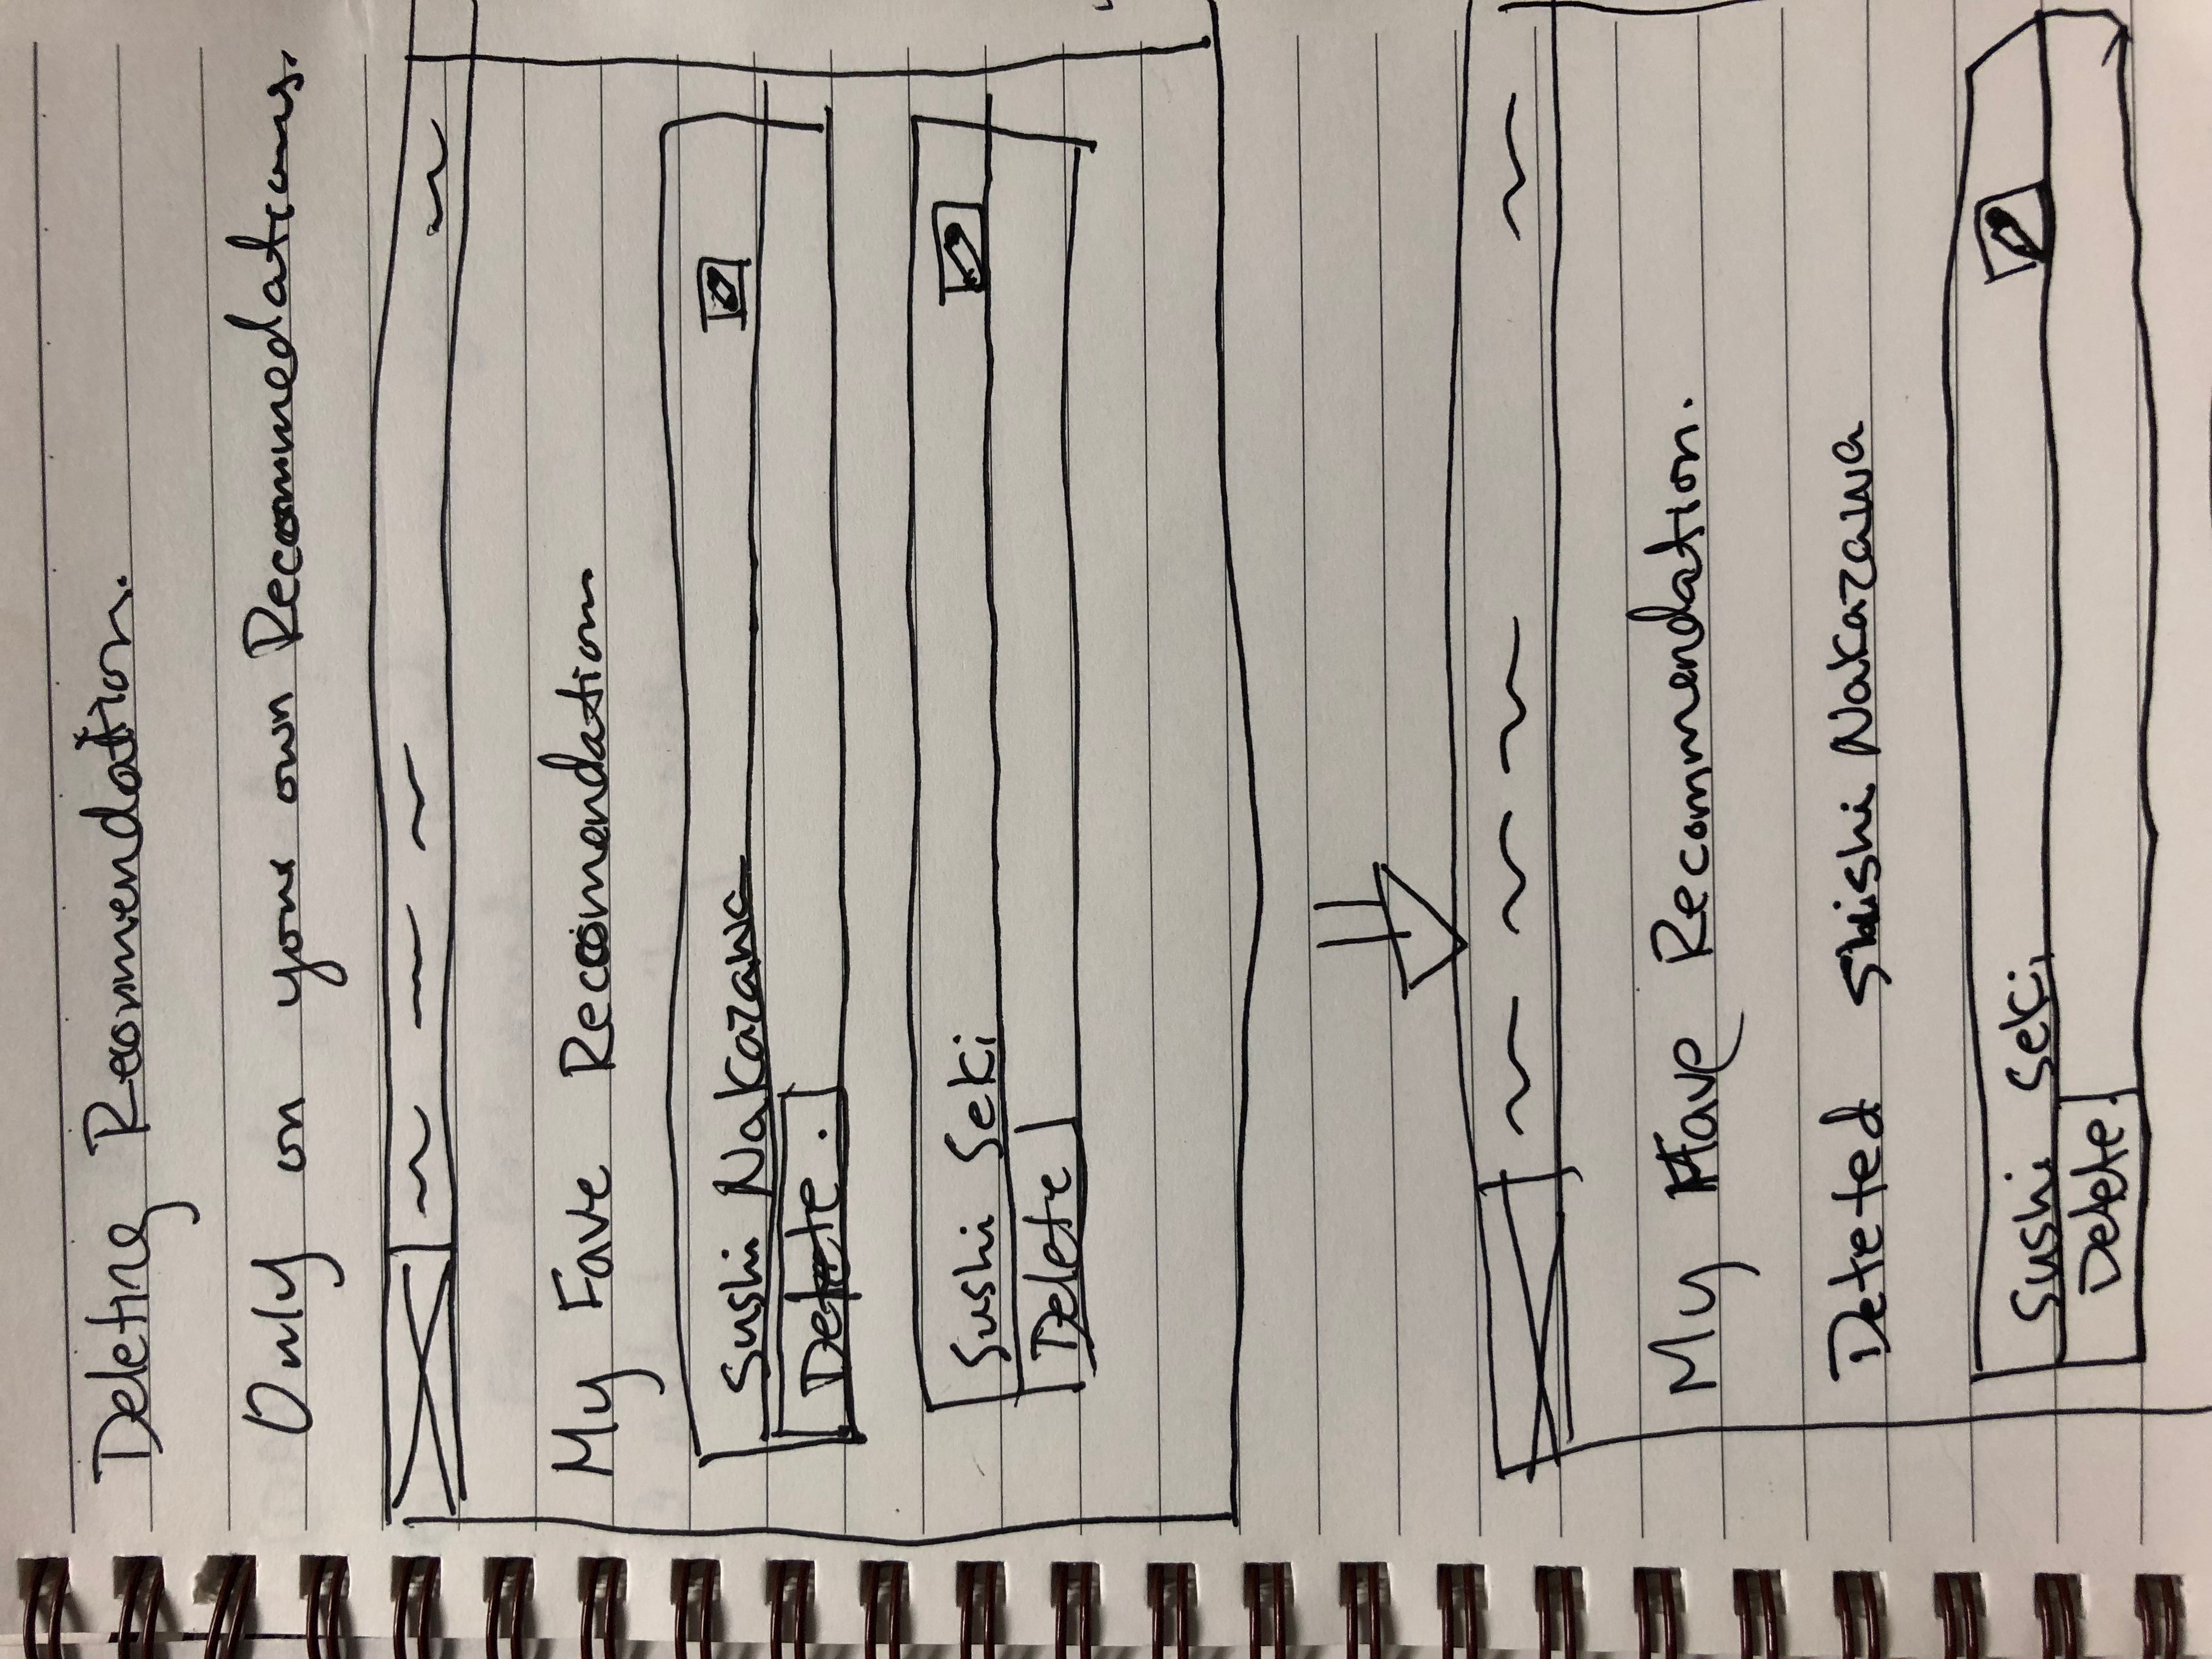 Deleting Recommendation.
Only on your own Recommedations.
My Fave Reccomendations
Sushi Nakazawa
Delete.
Sushi Seki
Delete
My Fave Recommendation.
Deteted Sushi Nakazawa
Sushi Seki
Delete.